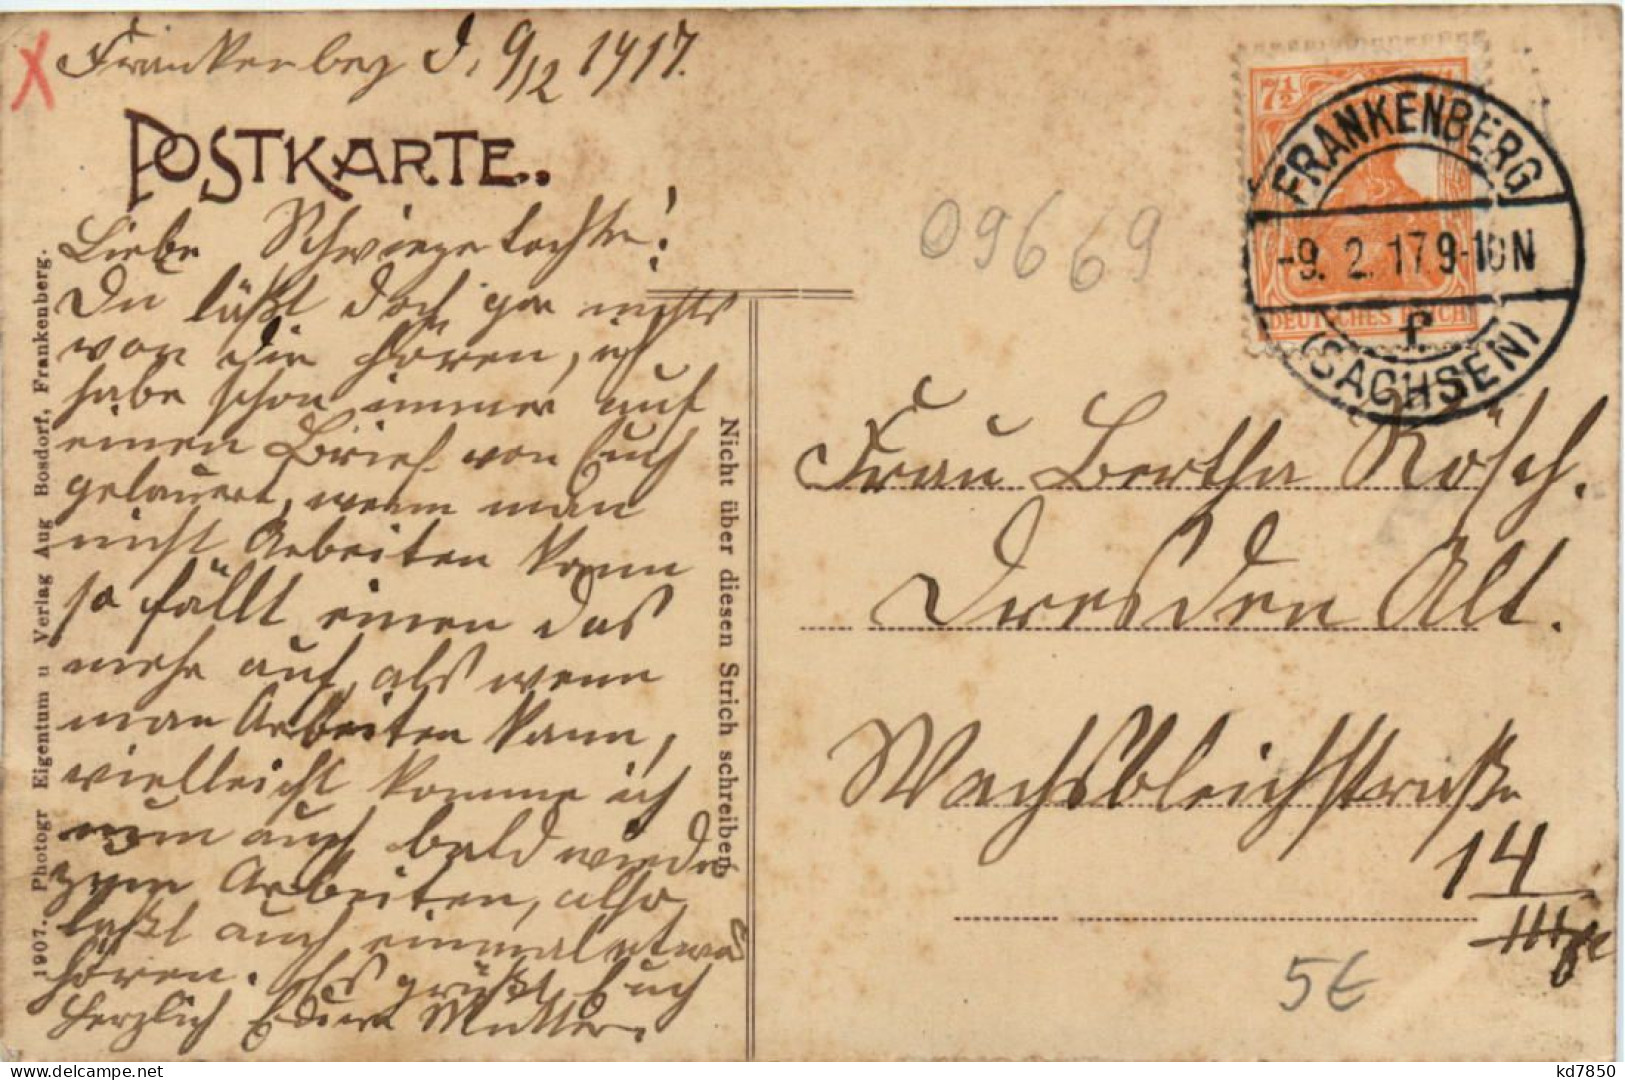 Frankenberg d. 9/12 1917.
POSTKARTE..
Liebe Schwiegetochter!
Du läßt doch gar nichts
von dir hören, ich
habe schon immer auf
einen Brief von Euch
gelauert, wenn man
nicht Arbeiten kann
so fällt einen das
mehr auf, als wenn
man Arbeiten kann,
vielleicht komme ich
nun auch bald wieder
zum Arbeiten, also
laßt auch einmal etwas
hören. Es grüßt Euch
Herzlich Eure Mutter.
1907. Photogr Eigentum u Verlag Aug Bosdorf, Frankenberg.
Nicht über diesen Strich schreiben
09669
7½
DEUTSCHES REICH
FRANKENBERG
-9. 2. 17. 9-10N
f.
(SACHSEN)
Frau Bertha Rösch.
Dresden Alt.
Wachsbleichstraße
14
III
5€
kd7850